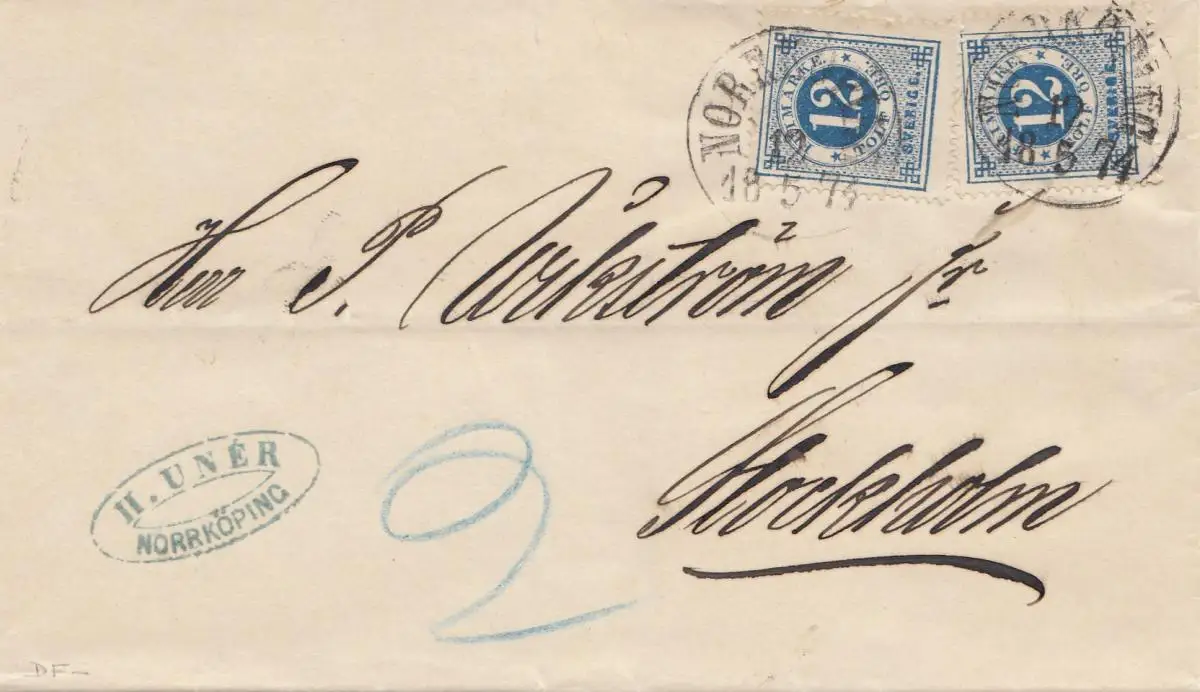 FRIMÄRKE. TOLF ÖRE
12
SVERIGE.
FRIMÄRKE. TOLF ÖRE
12
SVERIGE.
NORRKÖPING
12
18 5 74
18 5 74
Herr P.
jr
Stockholm
H. UNÉR
NORRKÖPING
2
DF